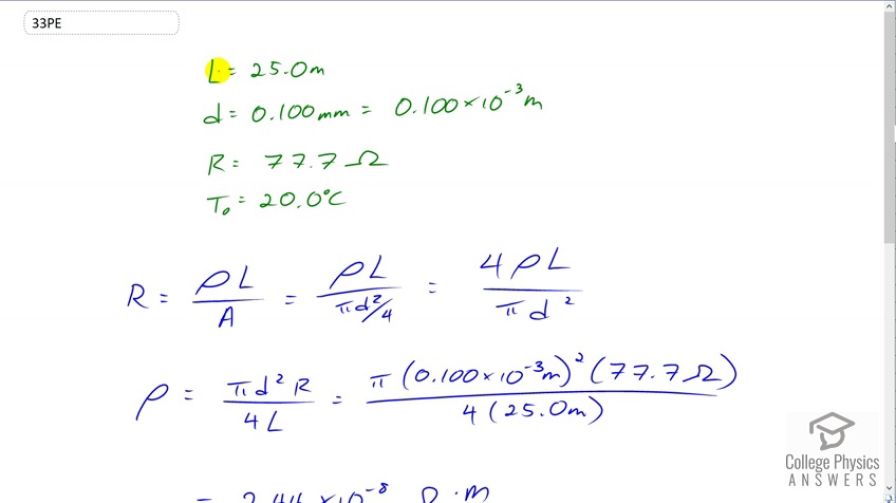 33PE
L = 25.0m
d = 0.100mm = 0.100×10⁻³m
R = 77.7 Ω
T₀ = 20.0°C
R = ρL/A = ρL/(πd²/4) = 4ρL/(πd²)
ρ = πd²R/(4L) = π(0.100×10⁻³m)²(77.7Ω)/(4(25.0m))
= 2.44×10⁻⁸ Ω·m
College Physics
ANSWERS